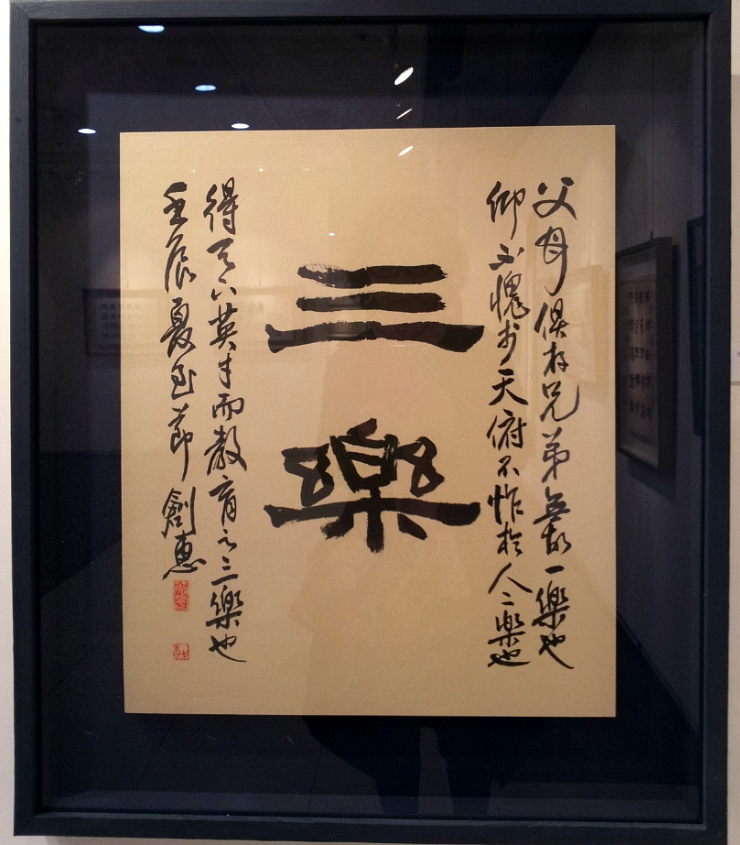 父母俱存兄弟無故一樂也
仰不愧於天俯不怍於人二樂也
三樂
得天下英才而教育之三樂也
壬辰夏至節 創惠